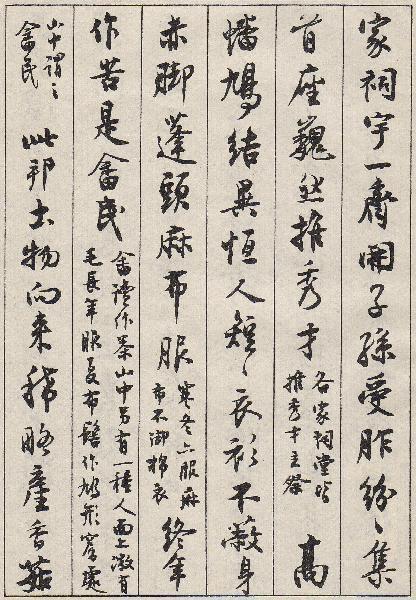 家祠宇一齊開子孫受胙紛紛集
首座巍然推秀才各家祠堂皆推秀才主祭高
幡鳩結異恒人短短衣衫不蔽身
赤脚蓬頭麻布服寒冬亦服麻布不御棉衣終年
作苦是畬民畬讀作茶山中另有一種人面上微有毛長年服夏布髻作鳩形窟處
山中謂之畬民此邦土物向來稀略產香菇